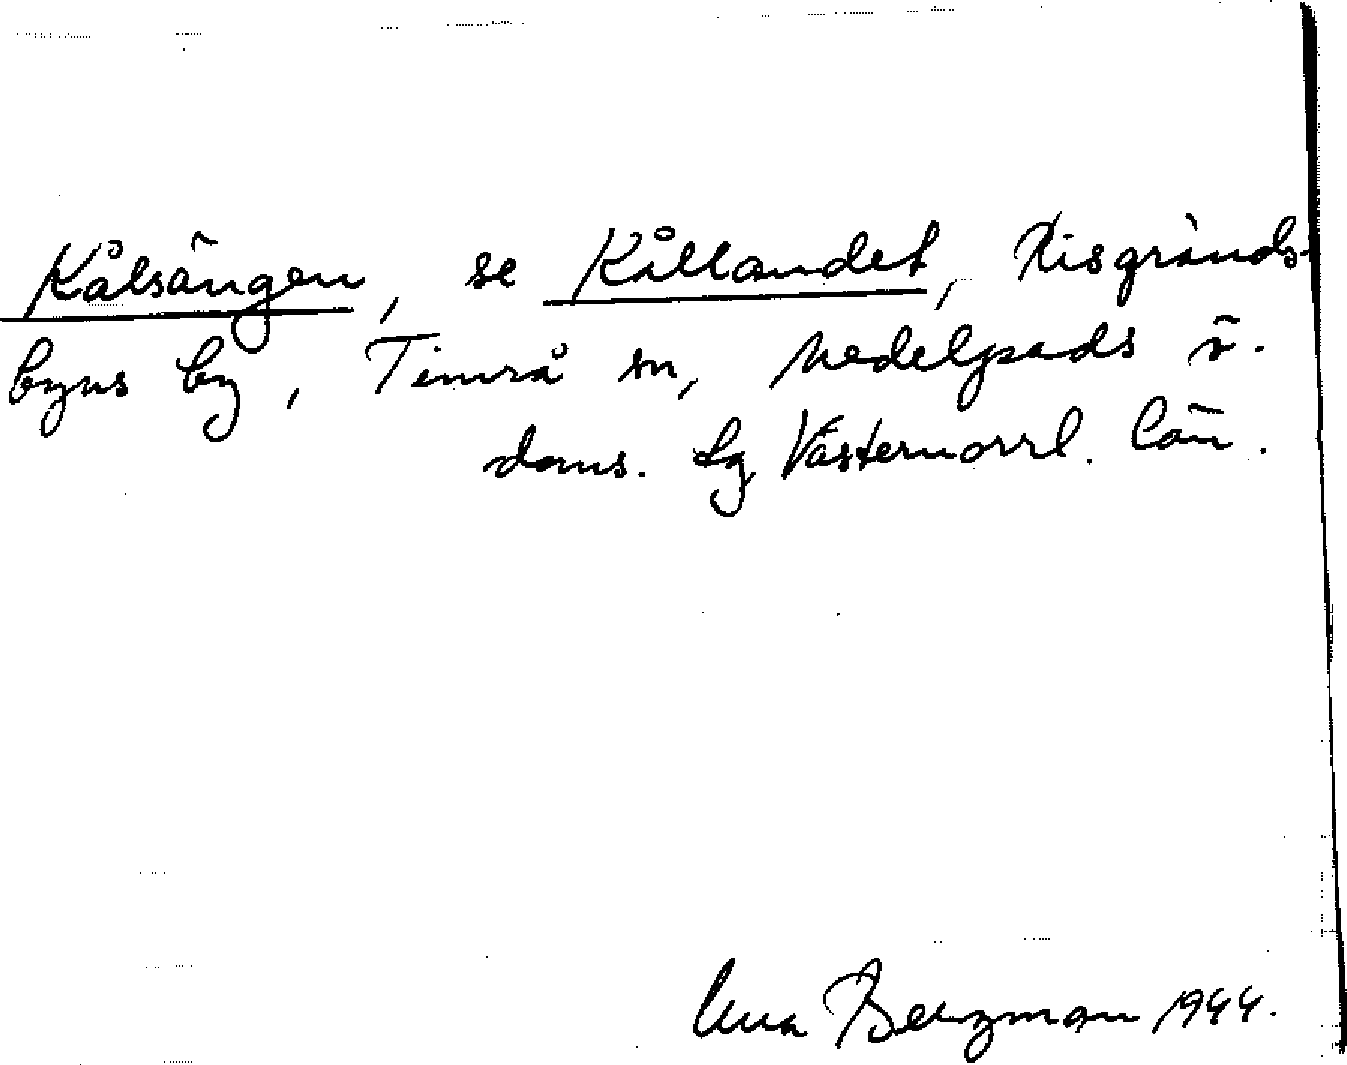 Kålsängen, se Kållandet, Risgrands-
byns by, Timrå sn, Medelpads v.
doms. hg Västernorrl. län.
Bergman 1944.